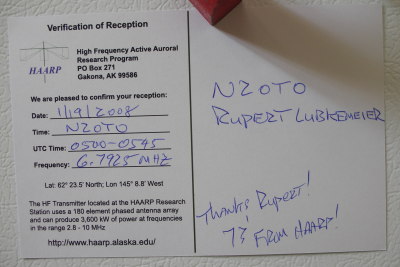 Verification of Reception
HAARP
High Frequency Active Auroral
Research Program
PO Box 271
Gakona, AK 99586
We are pleased to confirm your reception:
Date: 1/19/2008
Time: N2OTO
UTC Time: 0500-0545
Frequency: 6.7925 MHZ
Lat: 62° 23.5' North; Lon 145° 8.8' West
The HF Transmitter located at the HAARP Research
Station uses a 180 element phased antenna array
and can produce 3,600 kW of power at frequencies
in the range 2.8 - 10 MHz
http://www.haarp.alaska.edu/
N2OTO
RUPERT LUBKEMEIER
Thanks Rupert!
73 FROM HAARP!